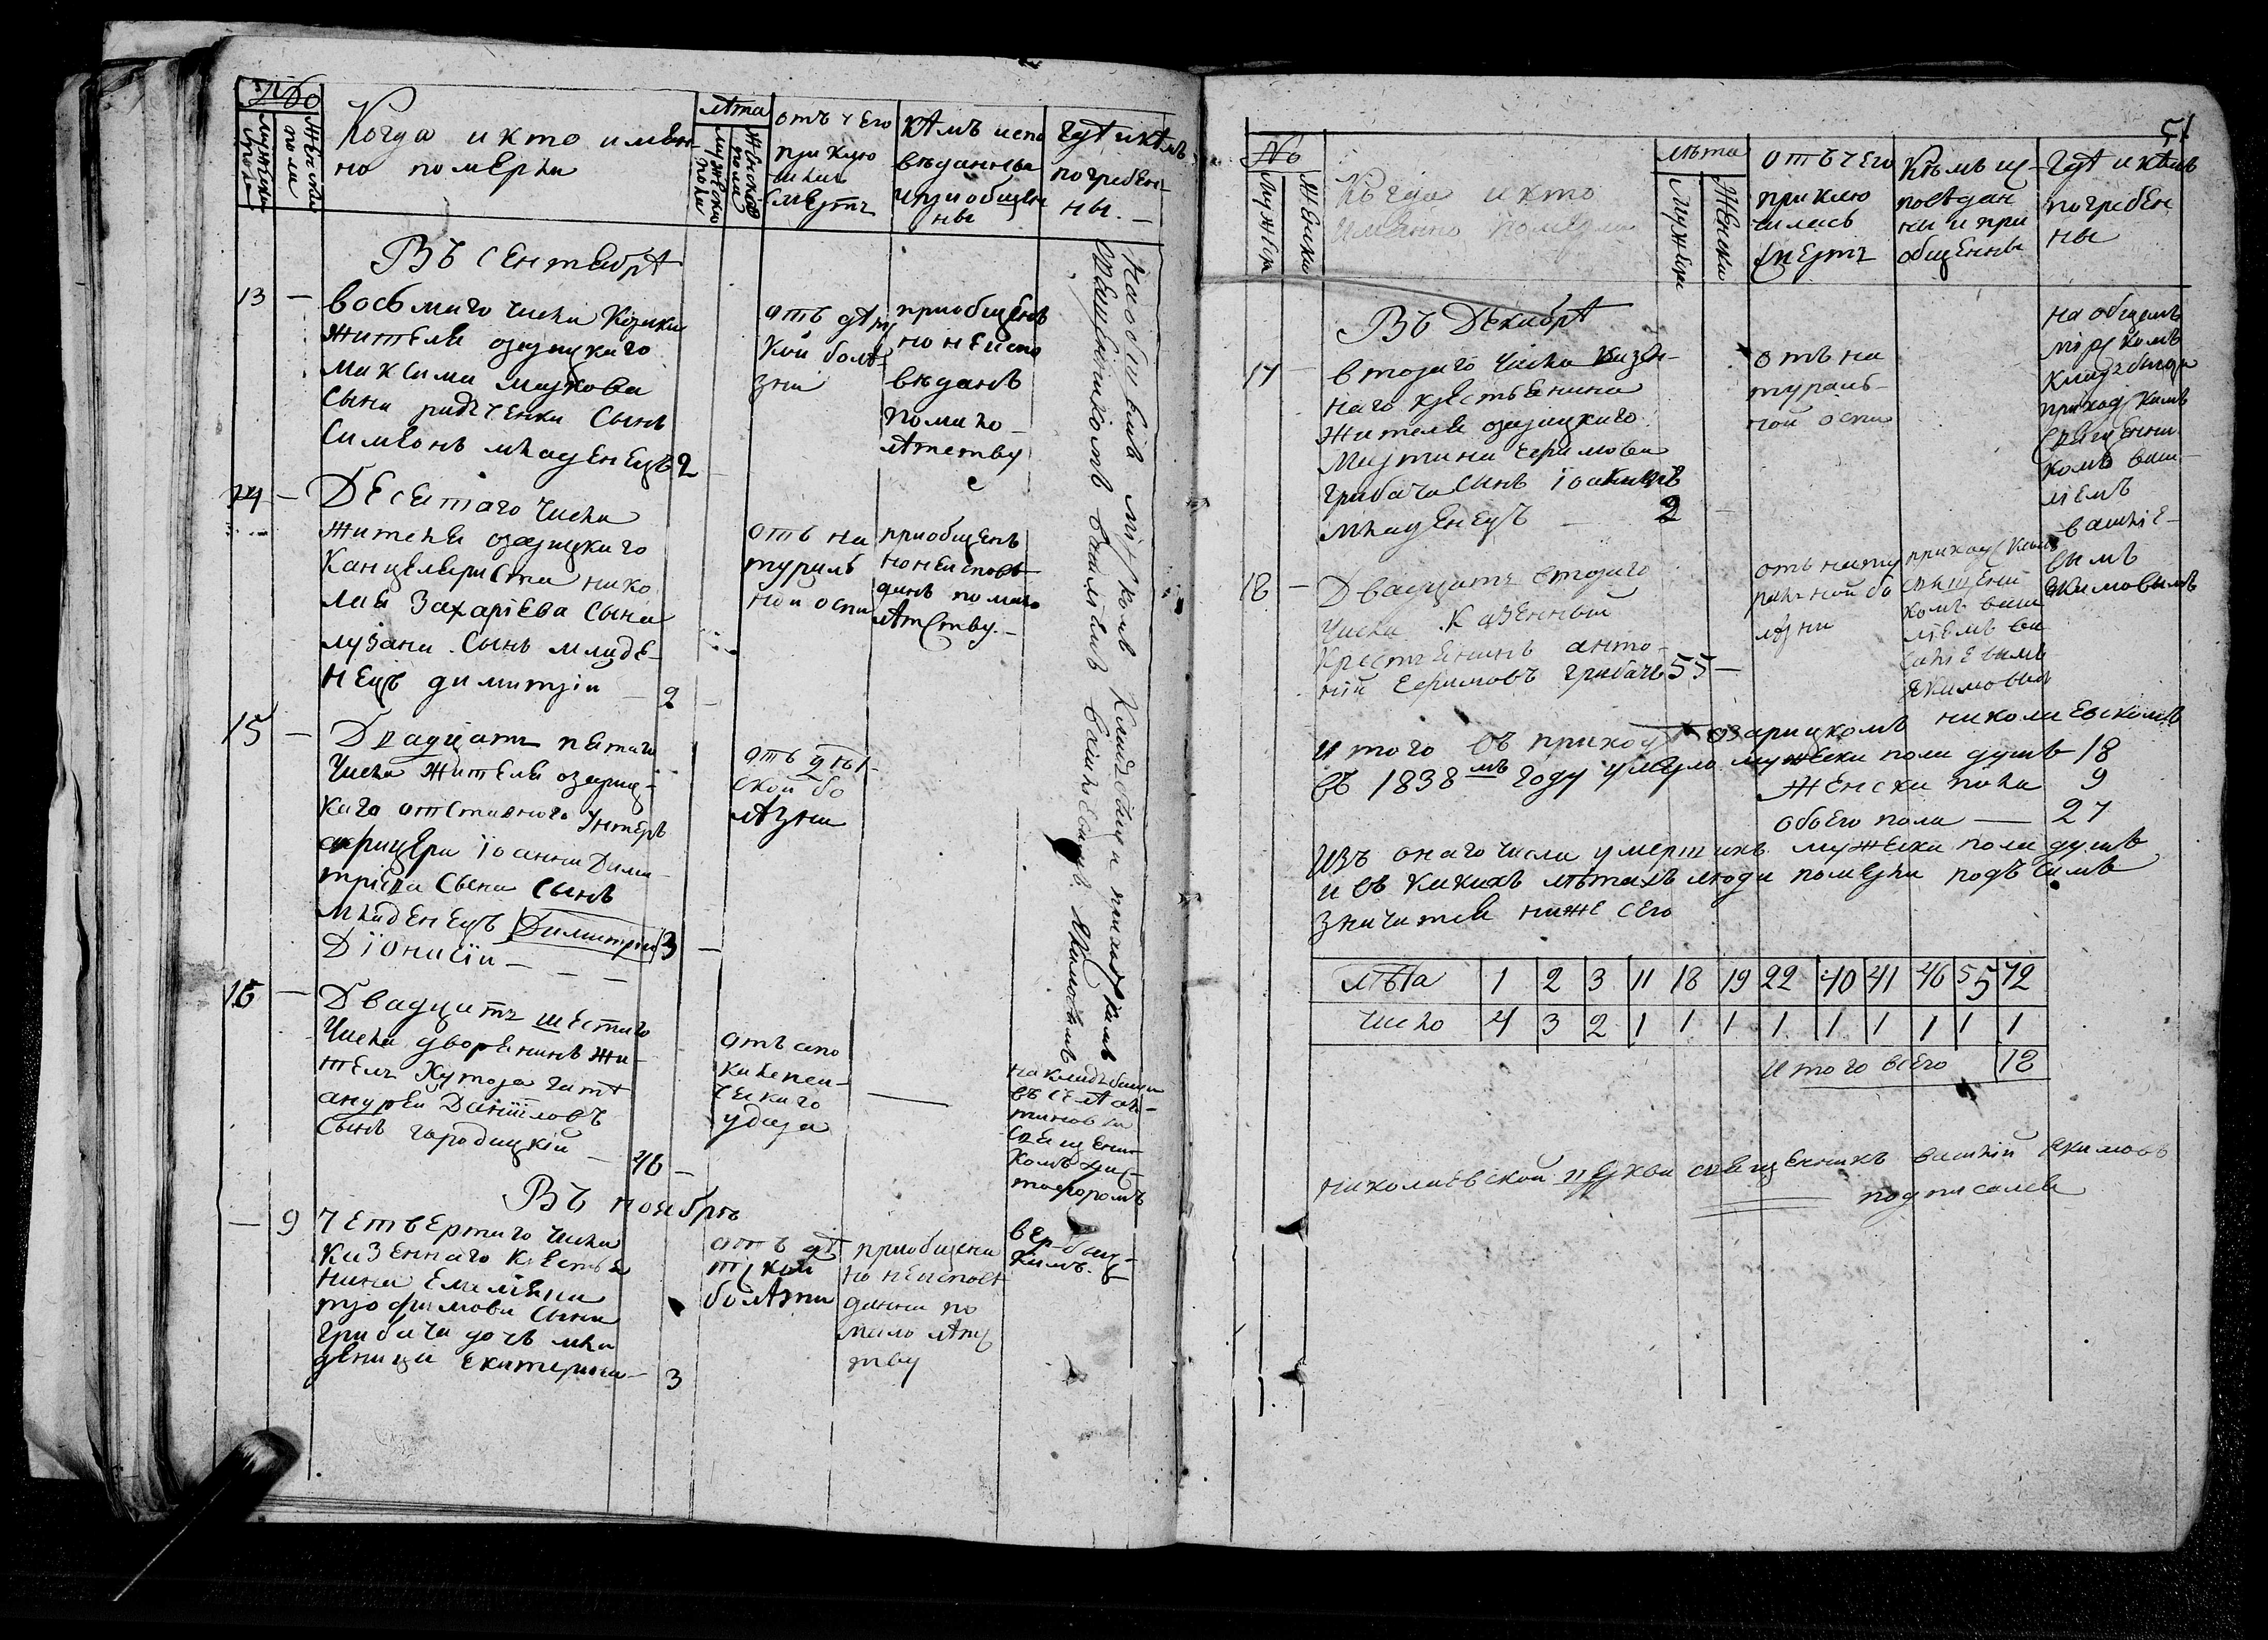 №
Мужеска пола
Женска пола
Когда и кто имян-
но померли
лѣта
мужеска пола
женска пола
отъ чего
приклю
чилась
смерть
кѣмъ испо
вѣданны
и приобщен
ны
гдѣ и кѣмъ
погребен-
ны. —
Въ сентябрѣ
13 — восьмаго числа козака
жителя озарицкаго
максима маркова
сына радченки сынъ
симеонъ младенецъ 2 —
отъ дѣтс
кой болѣ
зни
приобщенъ
но неиспо
вѣданъ
по мало
лѣтству
14 — Десятаго числа
жителя озарицкаго
канцеляриста нико
лая Захаріева сына
лузана сынъ младе-
нецъ димитрій — 2 —
отъ на
тураль
ной оспы
приобщенъ
но неисповѣ
данъ по мало
лѣтству. —
15 — Двадцать пятаго
числа жителя озариц-
каго отставного унтеръ
афицера іоанна Дими-
тріева сына сынъ
младенецъ Димитрій 3 —
Діонисій — — —
отъ дѣт-
ской бо
лѣзни
16 — Двадцать шестаго
числа дворянинъ жи-
тель хутора гатѣ
андрей Даніиловъ
сынъ городицкій — 46 —
отъ апо
калепси-
ческаго
удара
—
на кладбищи
въ селѣ
священни
комъ
вербиц-
кимъ.
Въ ноябрѣ
— 9 четвертаго числа
казеннаго крестья
нина емеліяна
трофимова сына
грибача дочь мла
деница екатерина — 3
отъ дѣ
тской
болѣзни
приобщена
но неисповѣ
данна по
мало лѣтс
тву
На общемъ мірскомъ кладбищи приходскимъ
священникомъ васіліемъ васіліевымъ якимовымъ
51
№
Мужеск
Женски
Когда и кто
имянно померли
лѣта
Мужеск
Женски
отъ чего
приклю
чилась
смерть
Кѣмъ ис-
повѣдан
ны и при
общенны
Гдѣ и кѣмъ
погребен
ны
Въ Декабрѣ
17 — втораго числа казен-
наго крестьянина
жителя озарицкаго
мартина ефимова
грибача сынъ іоакимъ
младенецъ — 2 —
отъ на
тураль-
ной оспы
на общемъ
мірскомъ
кладбищи
приходскимъ
священни
комъ васи-
ліемъ
василіе-
вымъ
Якимовымъ
18 — Двадцать втораго
числа казенный
крестьянинъ анто-
ній ефимовъ грибачъ 55 —
отъ нату
ральной бо
лѣзни
приходскимъ
священи
комъ васи
ліемъ ва
силіевымъ
якимовым
Итого въ приходѣ озарицкомъ николаевскомъ
въ 1838мъ году умерло мужеска пола душъ 18
женска пола 9
обоего пола — 27
Изъ онаго числа умершихъ мужеска пола душъ
и въ какихъ лѣтахъ люди померли подъ симъ
значится ниже сего
лѣта 1 2 3 11 18 19 22 40 41 46 55 72
число 4 3 2 1 1 1 1 1 1 1 1 1
Итого всего 18
николаевской церкви священникъ василій якимовъ
подписался